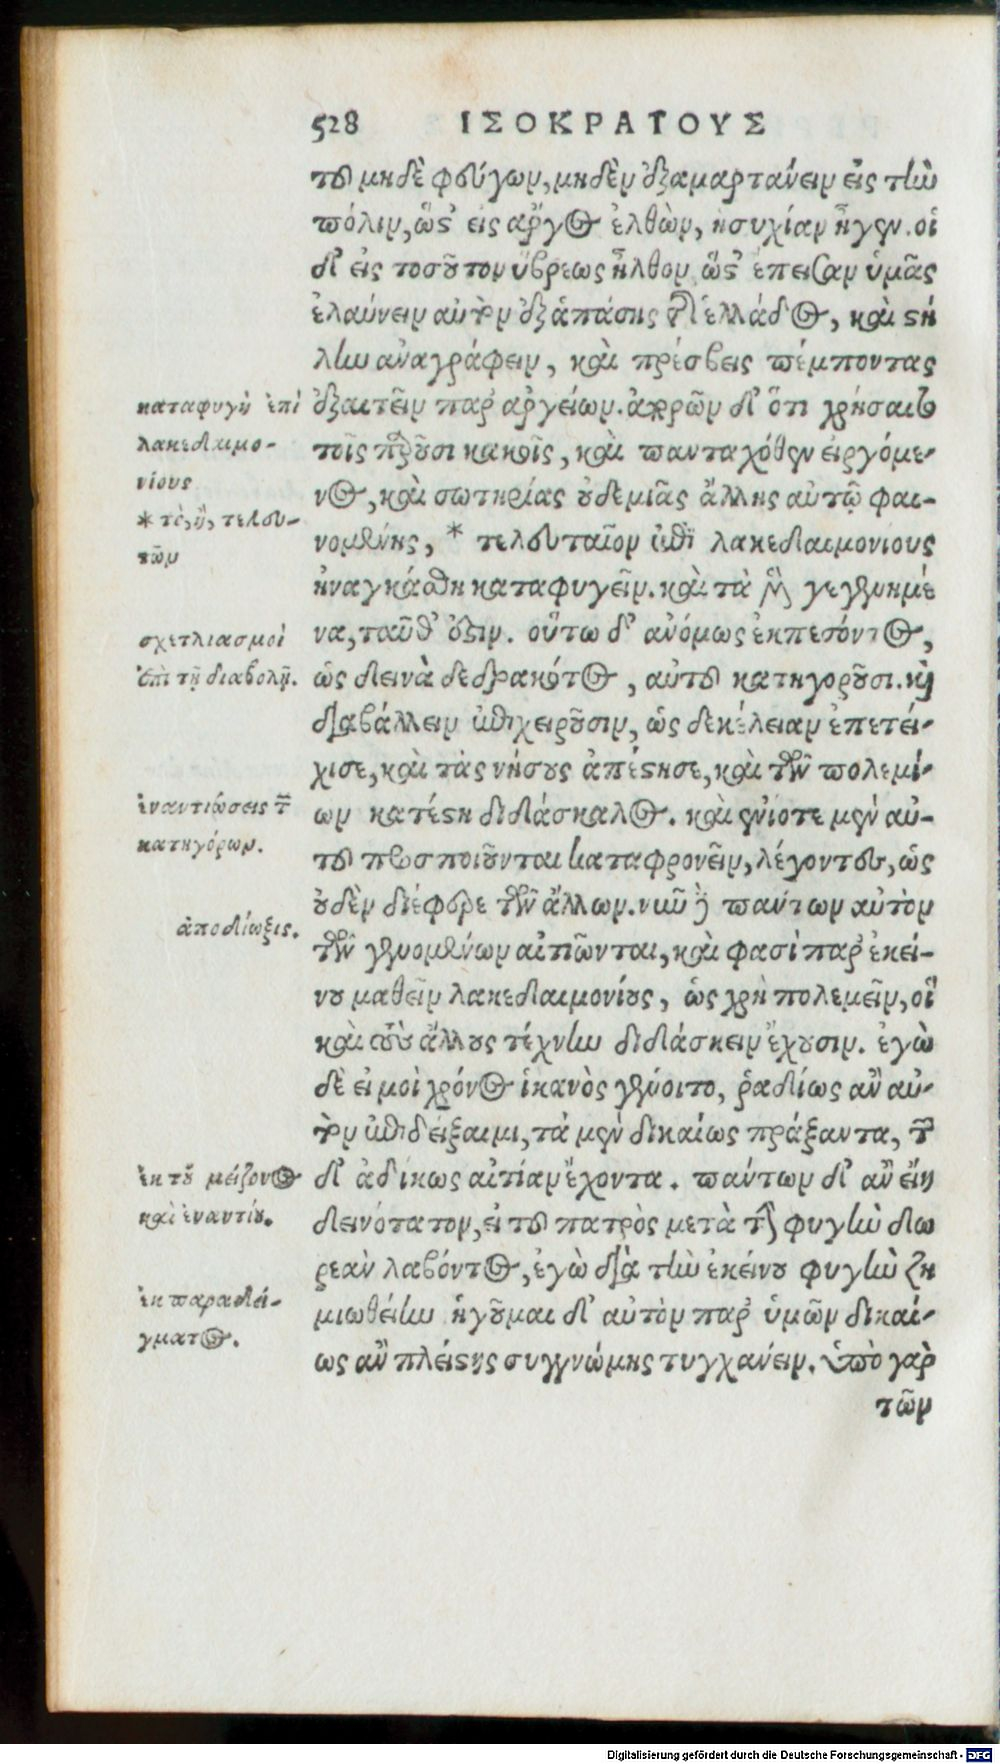 528 ΙΣΟΚΡΑΤΟΥΣ
του μηδὲ φεύγων, μηδὲν ἐξαμαρτάνειν εἰς τὴν
πόλιν, ὥστ' εἰς ἄργος ἐλθὼν, ἡσυχίαν ἦγεν. οἱ
δ' εἰς τοσοῦτον ὕβρεως ἦλθον ὥστ' ἔπεισαν ὑμᾶς
ἐλαύνειν αὐτὸν ἐξ ἁπάσης τῆς ἑλλάδος, καὶ στή
λην ἀναγράφειν, καὶ πρέσβεις πέμποντας
ἐξαιτεῖν παρ' ἀργείων. ἀπορῶν δ' ὅτι χρήσαιτο
τοῖς παροῦσι κακοῖς, καὶ πανταχόθεν εἰργόμε-
νος, καὶ σωτηρίας οὐδεμιᾶς ἄλλης αὐτῷ φαι-
νομένης, * τελευταῖον ἐπὶ λακεδαιμονίους
ἠναγκάσθη καταφυγεῖν. καὶ τὰ μὲν γεγενημέ
να, ταῦθ' ἐστίν. οὕτω δ' ἀνόμως ἐκπεσόντος,
ὡς δεινὰ δεδρακότος, αὐτοῦ κατηγοροῦσι. καὶ
διαβάλλειν ἐπιχειροῦσιν, ὡς δεκέλειαν ἐπετεί-
χισε, καὶ τὰς νήσους ἀπέστησε, καὶ τῶν πολεμί-
ων κατέστη διδάσκαλος. καὶ ἐνίοτε μὲν αὐ-
τοῦ προσποιοῦνται καταφρονεῖν, λέγοντες, ὡς
οὐδὲν διέφερε τῶν ἄλλων. νῦν δὲ πάντων αὐτὸν
τῶν γενομένων αἰτιῶνται, καὶ φασὶ παρ' ἐκεί-
νου μαθεῖν λακεδαιμονίους, ὡς χρὴ πολεμεῖν, οἳ
καὶ τοὺς ἄλλους τέχνην διδάσκειν ἔχουσιν. ἐγὼ
δὲ εἰ μοὶ χρόνος ἱκανὸς γένοιτο, ῥαδίως ἂν αὐ-
τὸν ἐπιδείξαιμι, τὰ μὲν δικαίως πράξαντα, τῶν
δ' ἀδίκως αἰτίαν ἔχοντα. πάντων δ' ἂν εἴη
δεινότατον, εἰ τοῦ πατρὸς μετὰ τὴν φυγὴν δω
ρεὰν λαβόντος, ἐγὼ διὰ τὴν ἐκείνου φυγὴν ζη
μιωθείην ἡγοῦμαι δ' αὐτὸν παρ' ὑμῶν δικαί-
ως ἂν πλείστης συγγνώμης τυγχάνειν. ὑπὸ γὰρ
τῶν
καταφυγὴ ἐπὶ
λακεδαιμο-
νίους
* τὸ, ἢ, τελευ-
τῶν
σχετλιασμοὶ
ἐπὶ τῇ διαβολῇ.
ἐναντιώσεις τῶν
κατηγόρων.
ἀποδίωξις.
ἐκ τοῦ μείζονος
καὶ ἐναντίου.
ἐκ παραδεί-
γματος.
Digitalisierung gefördert durch die Deutsche Forschungsgemeinschaft - DFG